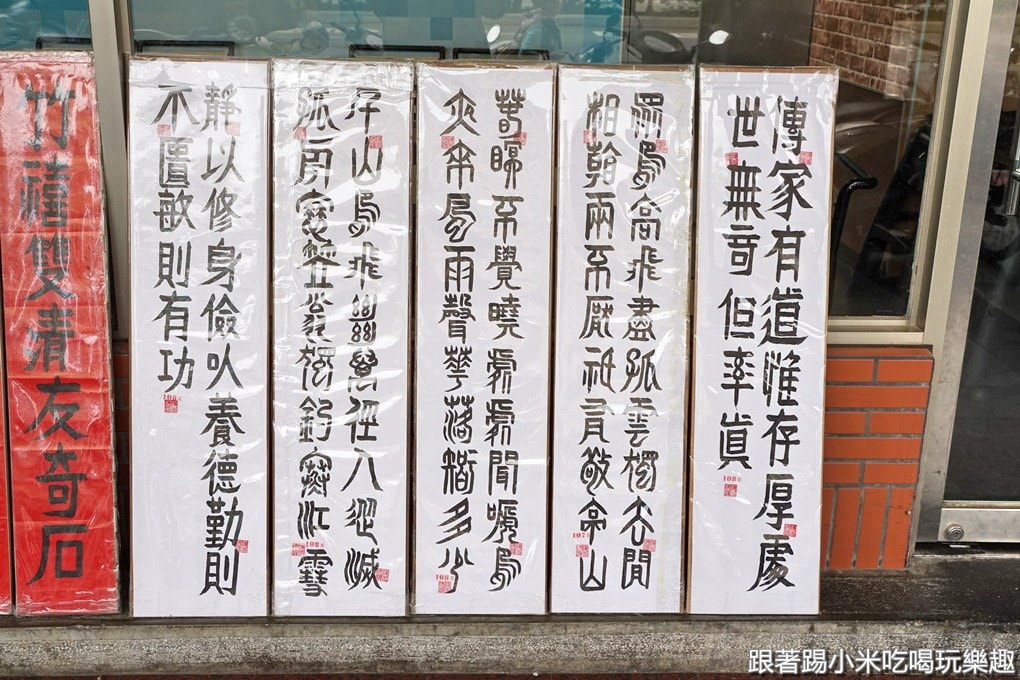 傳家有道惟存厚處
世無奇但率眞
108
眾鳥高飛盡孤雲獨去閒
相看兩不厭祇有敬亭山
107
春眠不覺曉處處聞啼鳥
夜來風雨聲華落知多少
108
千山鳥飛絕萬徑人蹤滅
孤舟簑笠翁獨釣寒江雪
108
靜以修身儉以養德勤則
不匱敏則有功
108
竹禧雙清友奇石
跟著踢小米吃喝玩樂趣